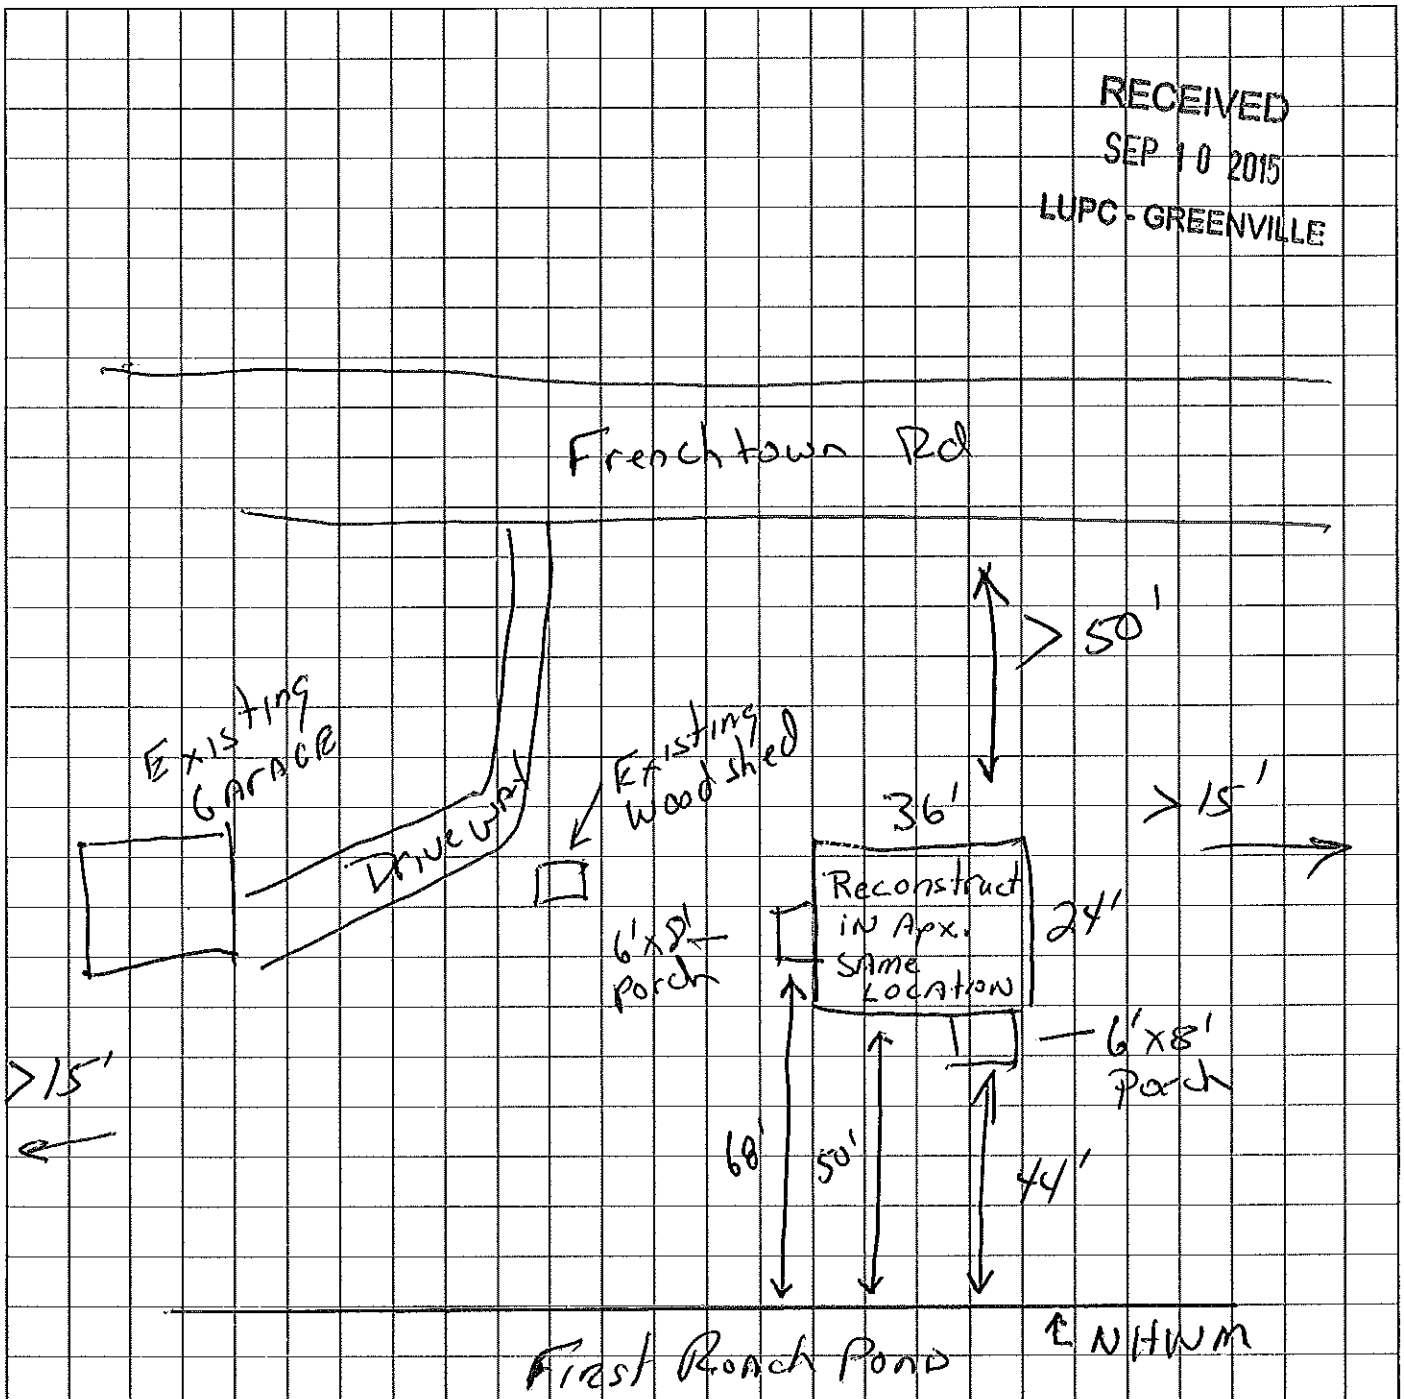 RECEIVED
SEP 10 2015
LUPC - GREENVILLE
Frenchtown Rd
> 50'
Existing
GARAGE
Driveway
Existing
Woodshed
36'
> 15'
Reconstruct
in Apx.
SAME
LOCATION
24'
6'x8'
porch
6'x8'
Porch
>15'
68'
50'
44'
NHWM
First Roach Pond